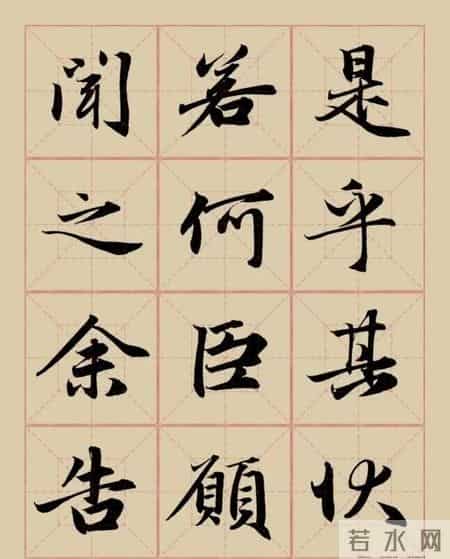 是乎其状
若何臣願
聞之余告
若水网